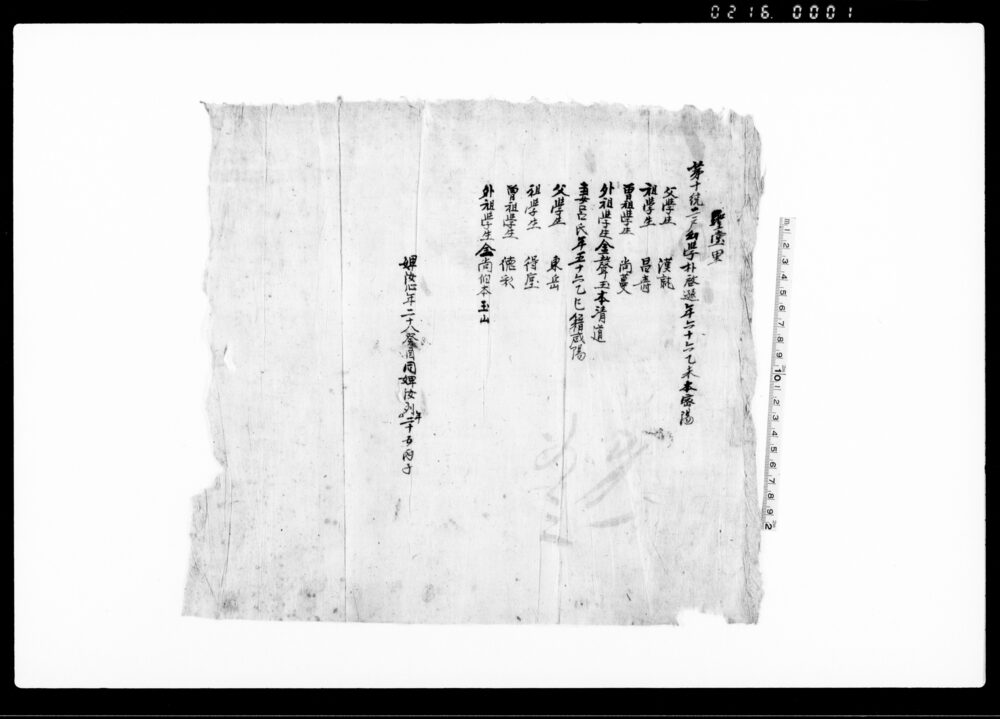 0216. 0001
聖堂里
第十統二戶幼學朴啓選年六十六乙未本密陽
父學生 漢龍
祖學生 昌壽
曾祖學生 尚蔓
外祖學生金聲玉本清道
妻呂氏年五十六乙巳籍咸陽
父學生 東岳
祖學生 得垕
曾祖學生 德彩
外祖學生全尚伯本玉山
婢汝心年二十八癸酉同婢汝列年二十五丙子
1 2 3 4 5 6 7 8 9 10 1 2 3 4 5 6 7 8 9 2